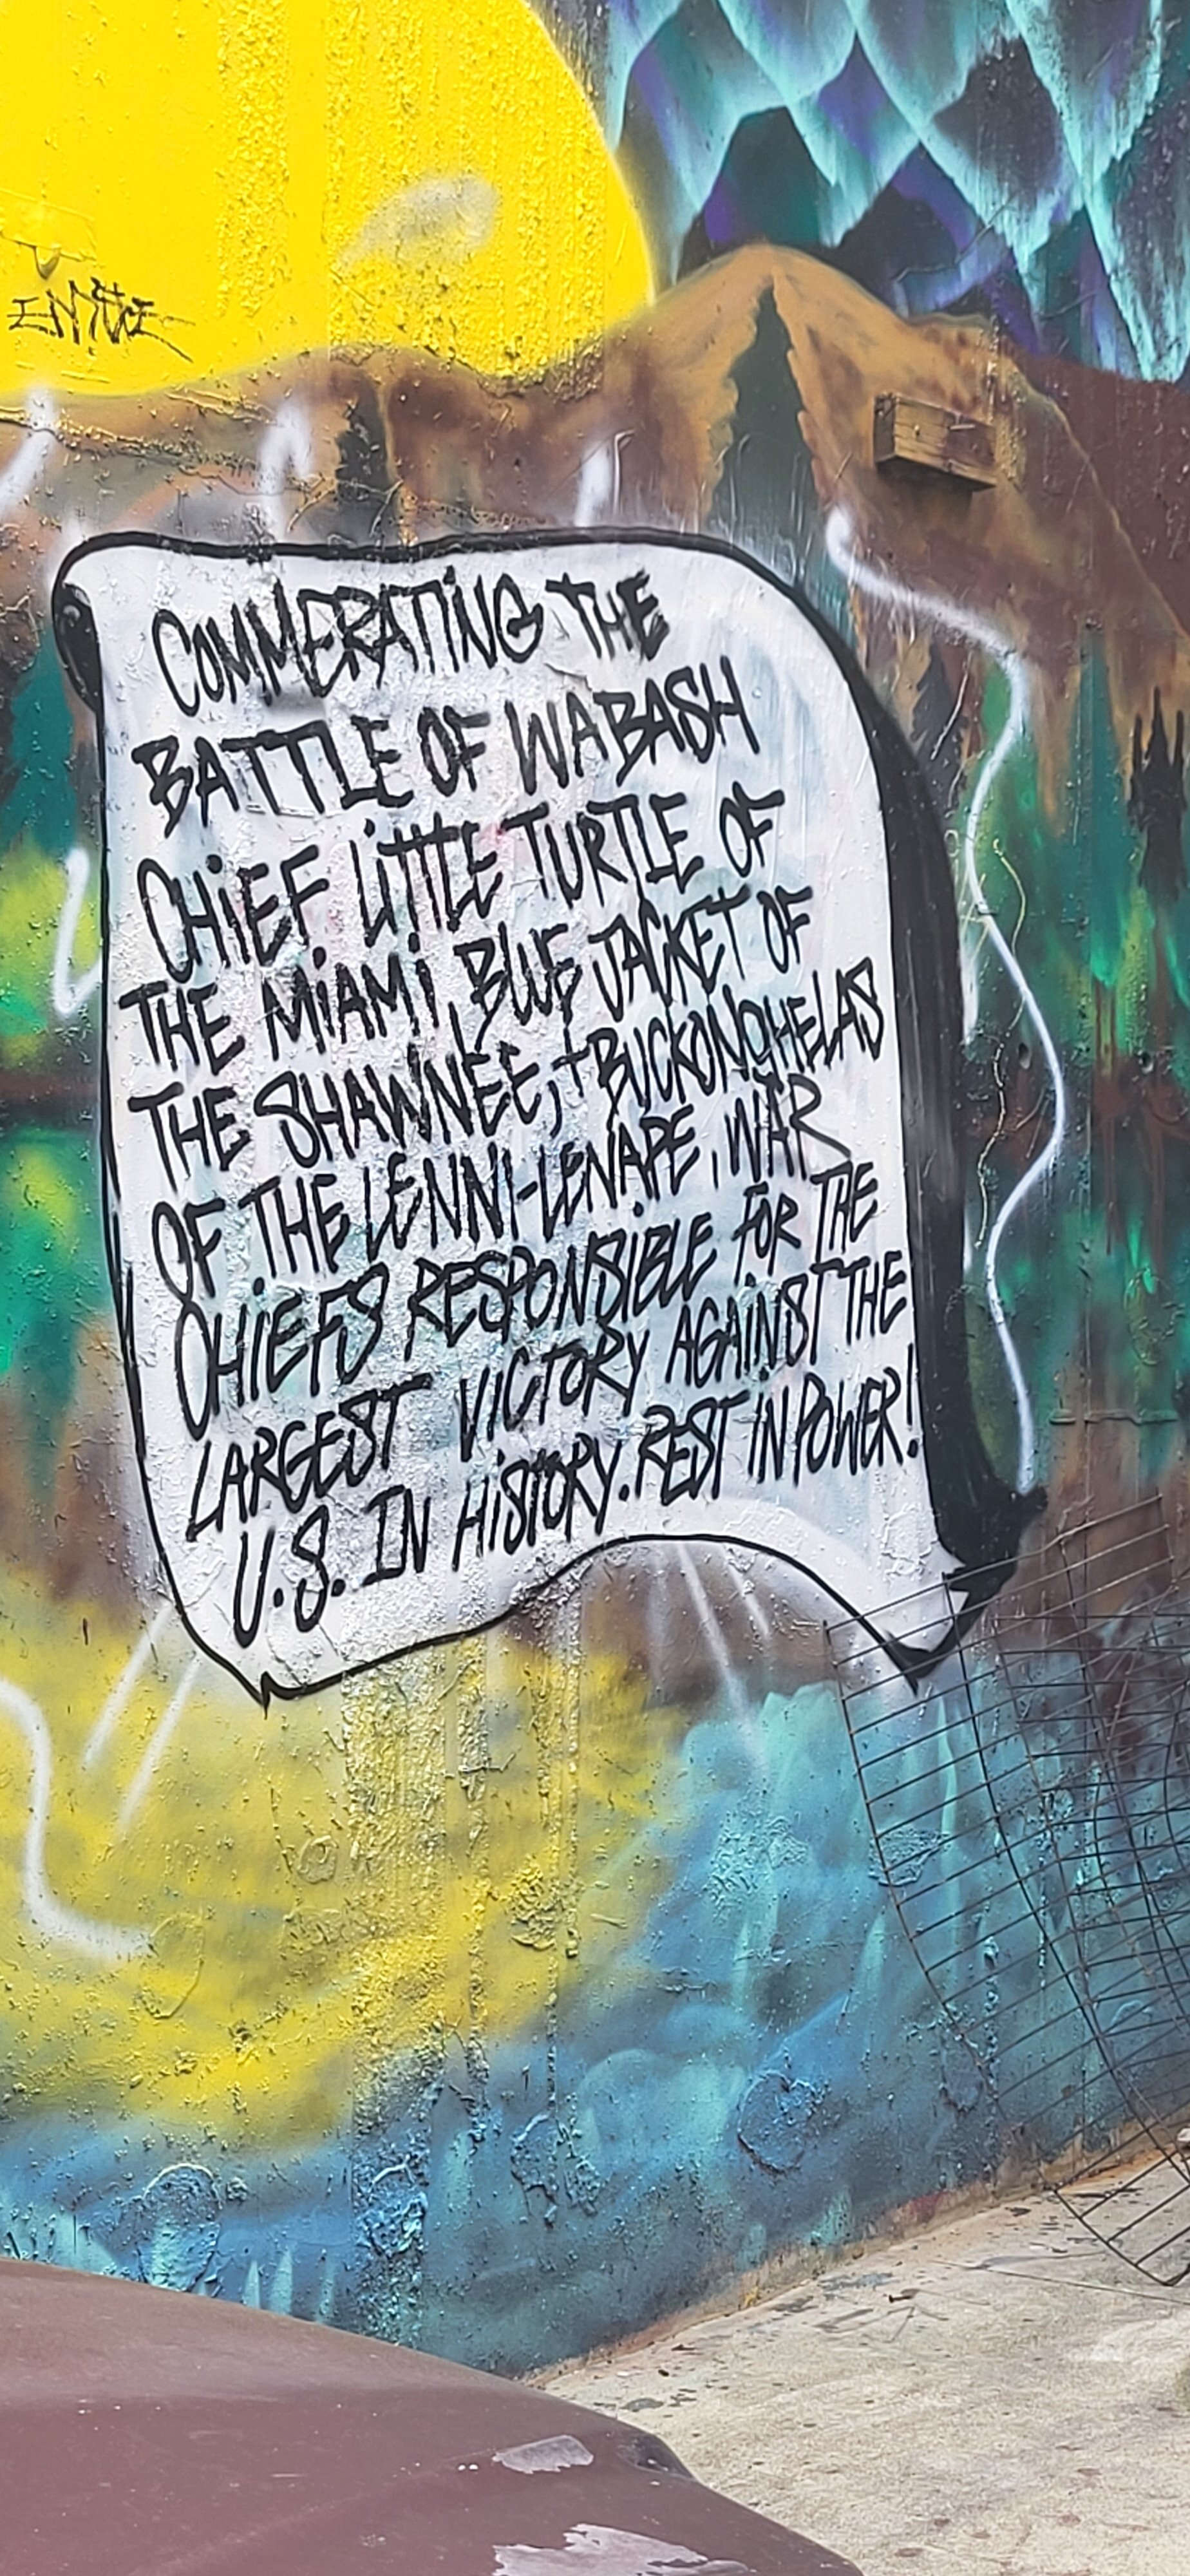 COMMERATING THE
BATTLE OF WABASH
CHIEF LITTLE TURTLE OF
THE MIAMI, BLUE JACKET OF
THE SHAWNEE, + BUCKONOHELAS
OF THE LENNI-LENAPE, WAR
CHIEFS RESPONSIBLE FOR THE
LARGEST VICTORY AGAINST THE
U.S. IN HISTORY. REST IN POWER!